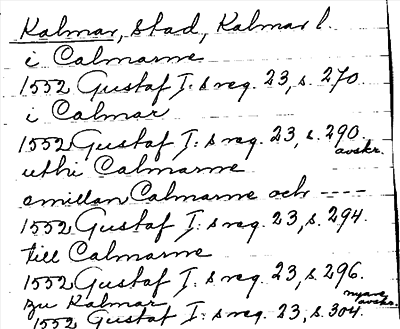 Kalmar, stad, Kalmar l.
i Calmarne
1552 Gustaf I: s reg. 23, s. 270.
i Calmar
1552 Gustaf I: s reg. 23, s. 290.
avskr.
uthi Calmarne
emillan Calmarne och ----
1552 Gustaf I: s reg. 23, s. 294.
till Calmarne
1552 Gustaf I: s reg. 23, s. 296.
zu Kalmar
nyare avskr.
1552 Gustaf I: s reg. 23, s. 304.